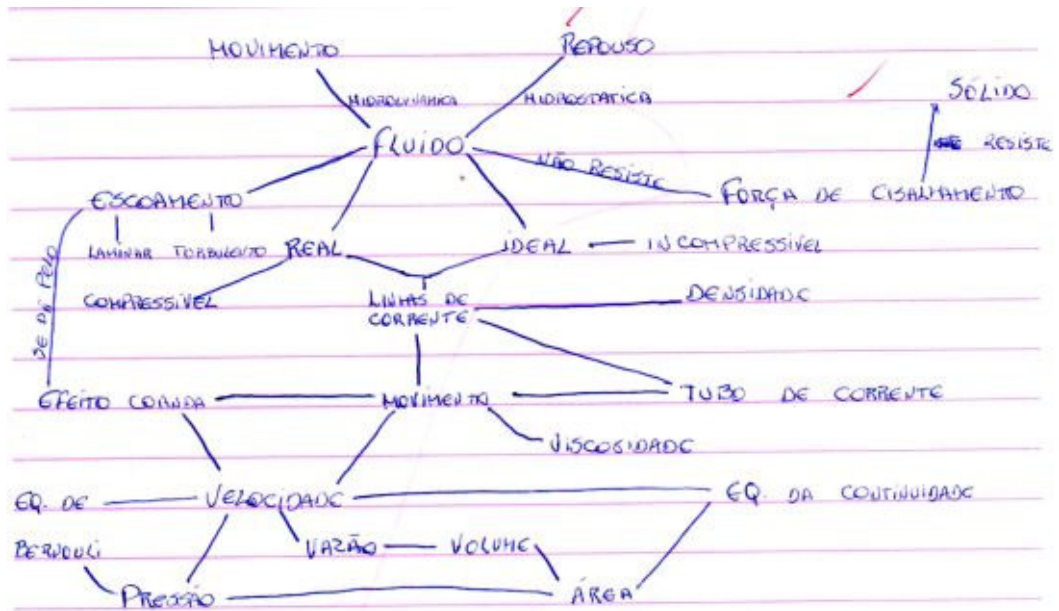 MOVIMENTO REPOUSO
HIDRODINÂMICA HIDROSTATICA SÓLIDO
FLUIDO NÃO RESISTE RESISTE
ESCOAMENTO FORÇA DE CISALHAMENTO
LAMINAR TURBULENTO REAL IDEAL INCOMPRESSÍVEL
SE DÁ PELO
COMPRESSÍVEL LINHAS DE DENSIDADE
CORRENTE
EFEITO COANDA MOVIMENTO TUBO DE CORRENTE
VISCOSIDADE
EQ. DE VELOCIDADE EQ. DA CONTINUIDADE
BERNOULI VAZÃO VOLUME
PRESSÃO ÁREA